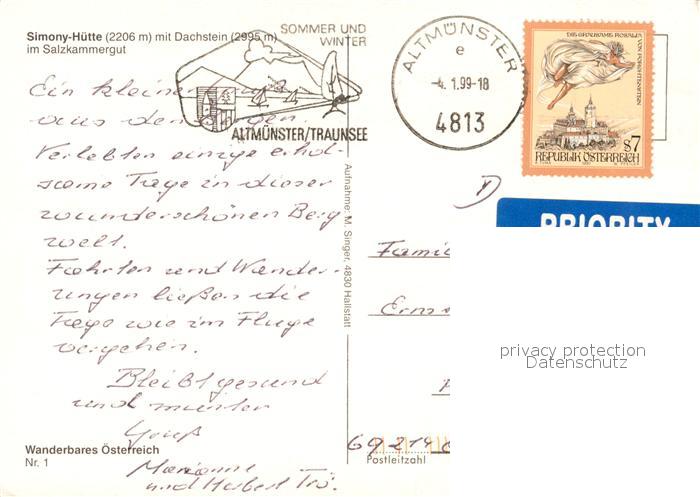 Simony-Hütte (2206 m) mit Dachstein (2995 m)
im Salzkammergut
SOMMER UND
WINTER
ALTMÜNSTER/TRAUNSEE
ALTMÜNSTER
e
-4. 1.99-18
4813
DIE GRAUSAME ROSALIA
VON FORCHTENSTEIN
s7
REPUBLIK ÖSTERREICH
PRIORITY
Ein kleiner
aus den
Verlebten einige erhol-
same Tage in dieser
wunderschönen Berg
welt.
Fahrten und Wander-
ungen ließen die
Tage wie im Fluge
vergehen.
Bleibt gesund
und munter
Gruß
Marianne
und Herbert
Wanderbares Österreich
Nr. 1
Aufnahme: M. Singer, 4830 Hallstatt
D
Famil
69214
Postleitzahl
privacy protection
Datenschutz